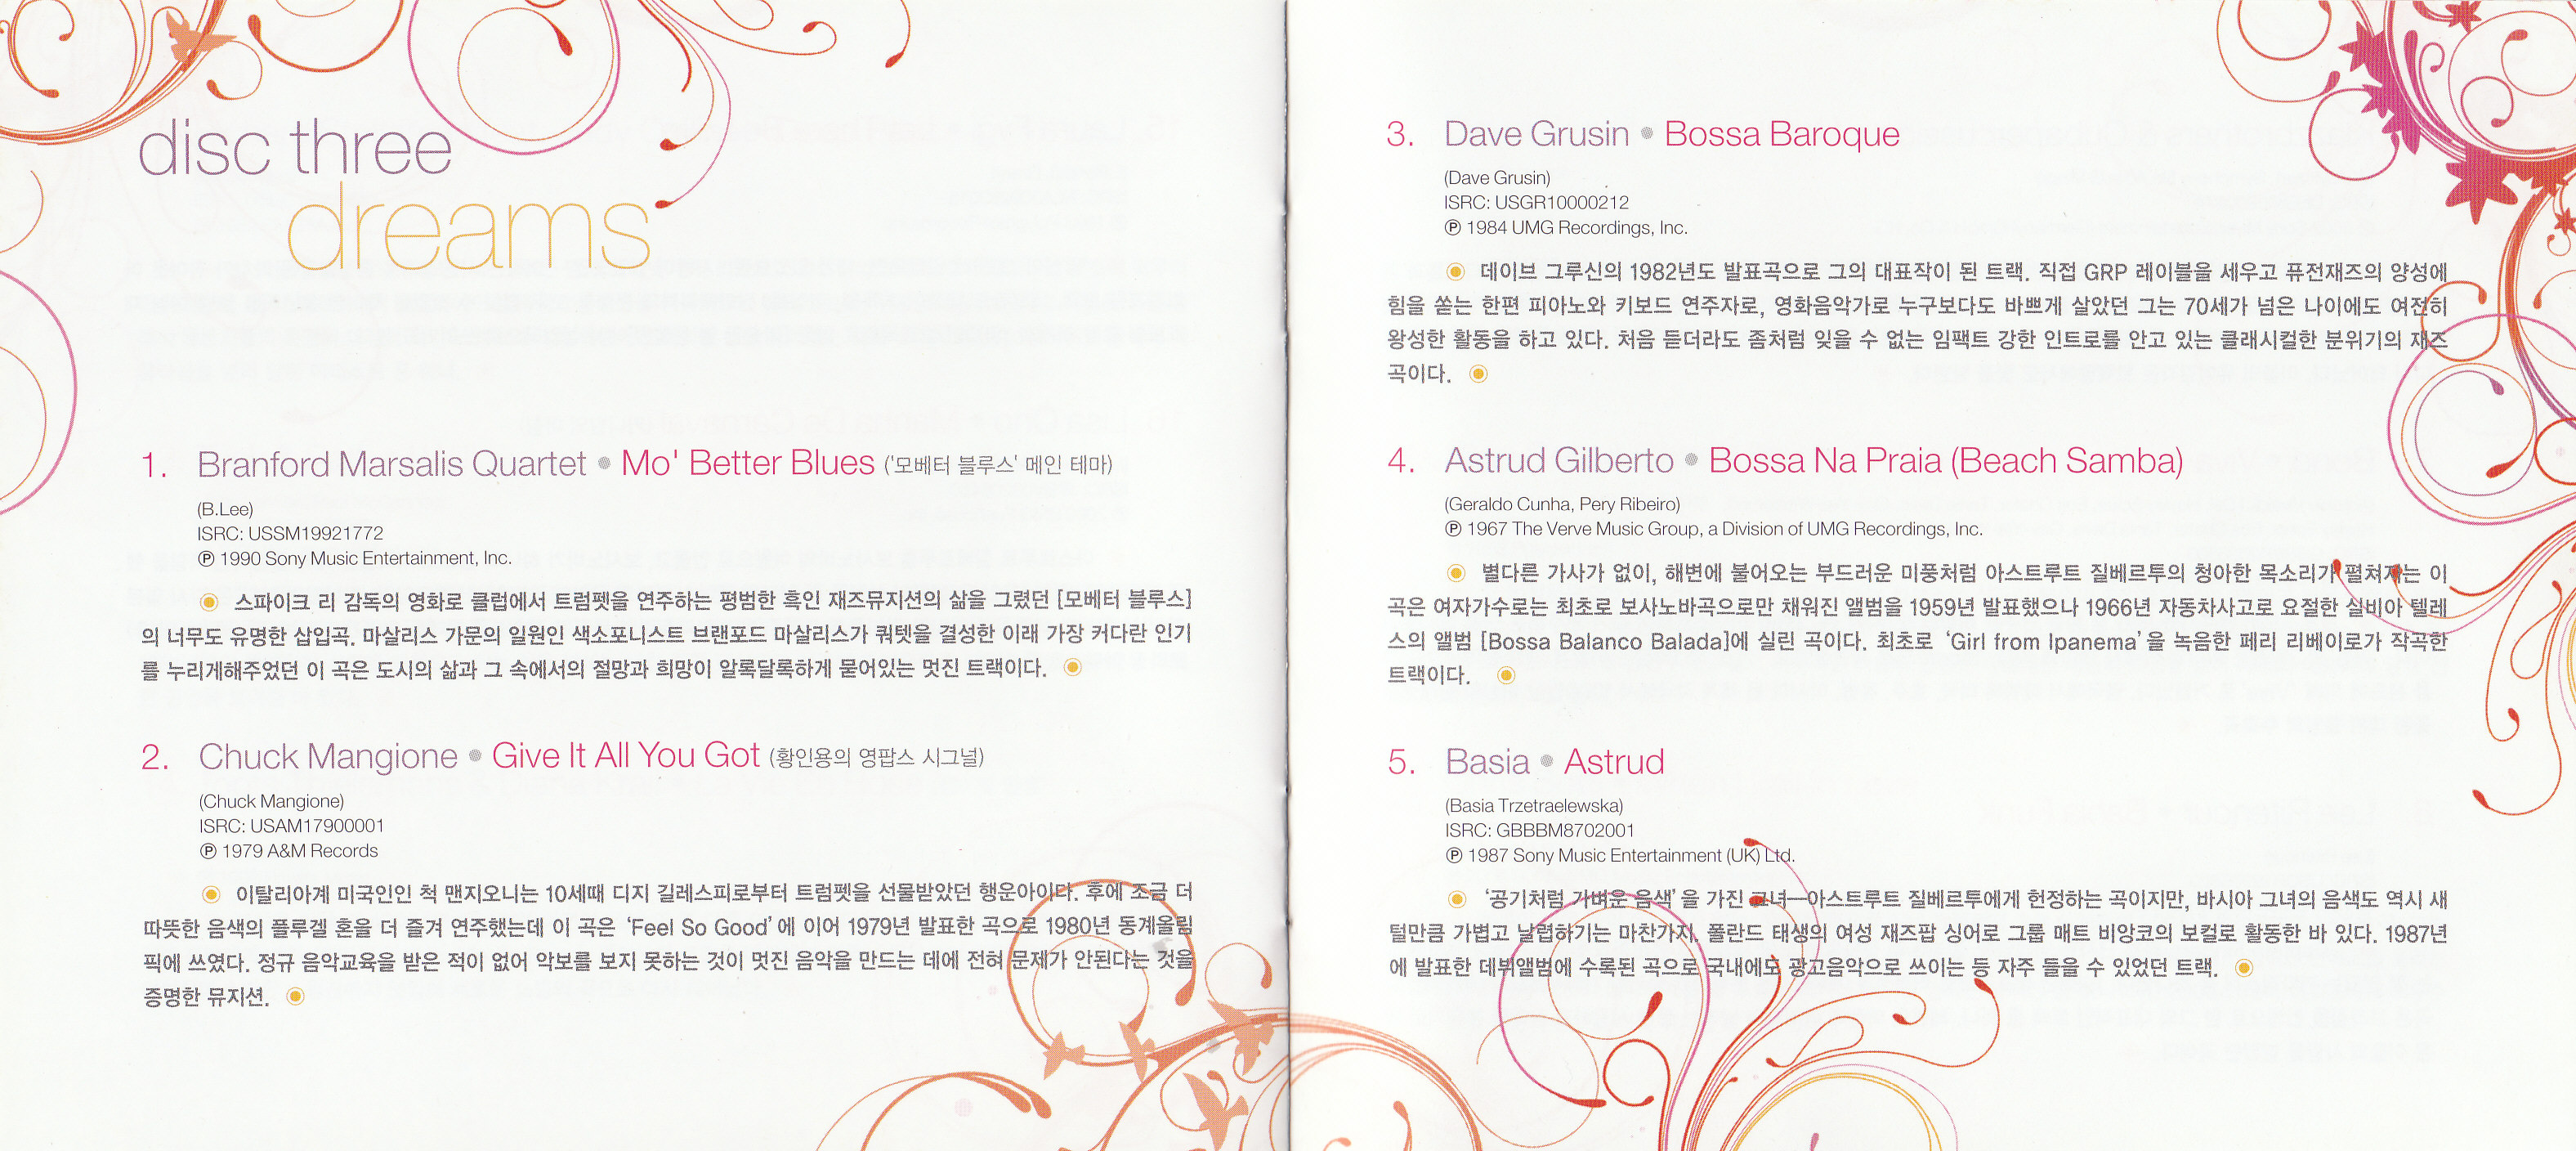 disc three
dreams
1. Branford Marsalis Quartet • Mo' Better Blues ('모베터 블루스' 메인 테마)
(B.Lee)
ISRC: USSM19921772
℗ 1990 Sony Music Entertainment, Inc.
스파이크 리 감독의 영화로 클럽에서 트럼펫을 연주하는 평범한 흑인 재즈뮤지션의 삶을 그렸던 [모베터 블루스]
의 너무도 유명한 삽입곡. 마살리스 가문의 일원인 색소포니스트 브랜포드 마살리스가 쿼텟을 결성한 이래 가장 커다란 인기
를 누리게해주었던 이 곡은 도시의 삶과 그 속에서의 절망과 희망이 알록달록하게 묻어있는 멋진 트랙이다.
2. Chuck Mangione • Give It All You Got (황인용의 영팝스 시그널)
(Chuck Mangione)
ISRC: USAM17900001
℗ 1979 A&M Records
이탈리아계 미국인인 척 맨지오니는 10세때 디지 길레스피로부터 트럼펫을 선물받았던 행운아이다. 후에 조금 더
따뜻한 음색의 플루겔 혼을 더 즐겨 연주했는데 이 곡은 ‘Feel So Good’에 이어 1979년 발표한 곡으로 1980년 동계올림
픽에 쓰였다. 정규 음악교육을 받은 적이 없어 악보를 보지 못하는 것이 멋진 음악을 만드는 데에 전혀 문제가 안된다는 것을
증명한 뮤지션.
3. Dave Grusin • Bossa Baroque
(Dave Grusin)
ISRC: USGR10000212
℗ 1984 UMG Recordings, Inc.
데이브 그루신의 1982년도 발표곡으로 그의 대표작이 된 트랙. 직접 GRP 레이블을 세우고 퓨전재즈의 양성에
힘을 쏟는 한편 피아노와 키보드 연주자로, 영화음악가로 누구보다도 바쁘게 살았던 그는 70세가 넘은 나이에도 여전히
왕성한 활동을 하고 있다. 처음 듣더라도 좀처럼 잊을 수 없는 임팩트 강한 인트로를 안고 있는 클래시컬한 분위기의 재즈
곡이다.
4. Astrud Gilberto • Bossa Na Praia (Beach Samba)
(Geraldo Cunha, Pery Ribeiro)
℗ 1967 The Verve Music Group, a Division of UMG Recordings, Inc.
별다른 가사가 없이, 해변에 불어오는 부드러운 미풍처럼 아스트루트 질베르투의 청아한 목소리가 펼쳐지는 이
곡은 여자가수로는 최초로 보사노바곡으로만 채워진 앨범을 1959년 발표했으나 1966년 자동차사고로 요절한 실비아 텔레
스의 앨범 [Bossa Balanco Balada]에 실린 곡이다. 최초로 ‘Girl from Ipanema’을 녹음한 페리 리베이로가 작곡한
트랙이다.
5. Basia • Astrud
(Basia Trzetraelewska)
ISRC: GBBBM8702001
℗ 1987 Sony Music Entertainment (UK) Ltd.
‘공기처럼 가벼운 음색’을 가진 그녀—아스트루트 질베르투에게 헌정하는 곡이지만, 바시아 그녀의 음색도 역시 새
털만큼 가볍고 날렵하기는 마찬가지. 폴란드 태생의 여성 재즈팝 싱어로 그룹 매트 비앙코의 보컬로 활동한 바 있다. 1987년
에 발표한 데뷔앨범에 수록된 곡으로 국내에도 광고음악으로 쓰이는 등 자주 들을 수 있었던 트랙.